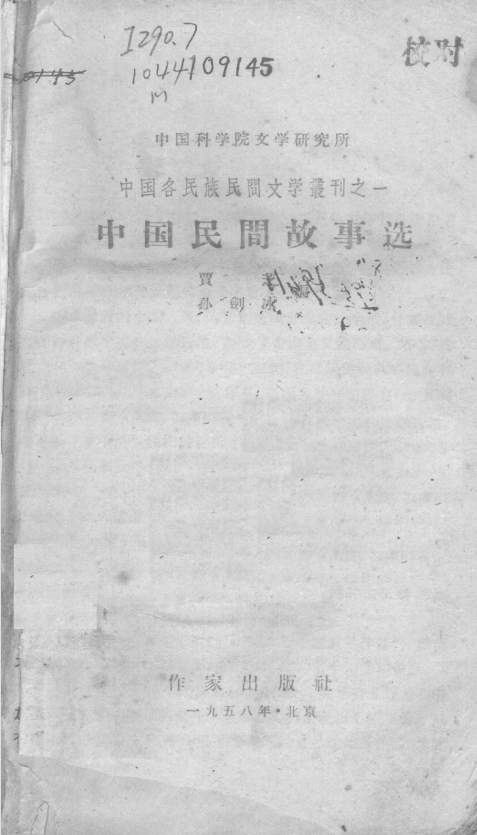 I290.7
校对
0145
1044109145
M
中国科学院文学研究所
中国各民族民間文学叢刊之一
中国民間故事选
賈
孙劍冰
作家出版社
一九五八年·北京